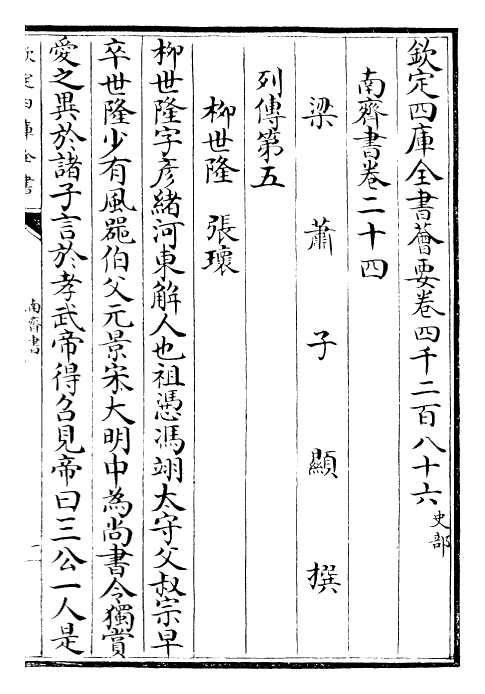 欽定四庫全書薈要卷四千二百八十六史部
南齊書卷二十四
梁蕭子顯撰
列傳第五
柳世隆 張瓌
柳世隆字彥緒河東解人也祖憑馮翊太守父叔宗早
卒世隆少有風器伯父元景宋大明中為尚書令獨賞
愛之異於諸子言於孝武帝得召見帝曰三公一人是
欽定四庫全書
南齊書